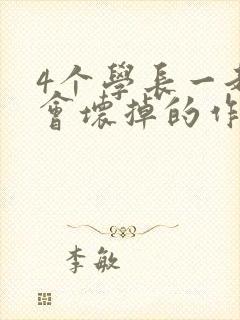 4个學長一
會壞掉的作
李敏